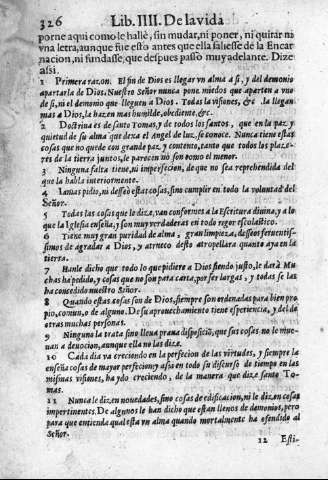 326 Lib. IIII. De la vida
porne aqui como le hallè, sin mudar, ni poner, ni quitar ni
vna letra, aunque fue esto antes que ella saliesse dè la Encar
nacion, ni fundasse, que despues passo muy adelante. Dize
assi.
1 Primera razon. El fin de Dios es llegar vn alma a si, y del demonio
apartarla de Dios. Nuestro Señor nunca pone miedos que aparten a vno
de si, ni el demonio que lleguen a Dios. Todas las visiones, &c. la llegan
mas a Dios, la hazen mas humilde, obediente, &c.
2 Doctrina es de santo Tomas, y de todos los santos, que en la paz, y
quietud de su alma que dexa el Angel de luz, se conoce. Nunca tiene estas
cosas que no quede con grande paz, y contento, tanto que todos los plaze-
res de la tierra juntos, le parecen no son como el menor.
3 Ninguna falta tiene, ni imperfecion, de que no sea reprehendida del
que la habla interiormente.
4 Iamas pidio, ni desseò estas cosas, sino cumplir en todo la voluntad del
Señor.
5 Todas las cosas que le dize, van conformes a la Escritura diuina, y a lo
que la Iglesia enseña, y son muy verdaderas en todo rigor escolastico.
6 Tiene muy gran puridad de alma, gran limpieza, desseos feruentis-
simos de agradar a Dios, y a trueco desto atropellara quanto aya en la
tierra.
7 Hanle dicho que todo lo que pidiere a Dios siendo justo, le darà. Mu
chas ha pedido, y cosas que no son para carta, por ser largas, y todas se las
ha concedido nuestro Señor.
8 Quando estas cosas son de Dios, siempre son ordenadas para bien pro
pio, comun, o de alguno. De su aprouechamiento tiene esperiencia, y del de
otras muchas personas.
9 Ninguno la trata sino lleua praua disposiciõ, que sus cosas no le mue-
uan a deuocion, aunque ella no las dize.
10 Cada dia va creciendo en la perfecion de las virtudes, y siempre la
enseña cosas de mayor perfecion y assi en todo su discurso de tiempo en las
mismas visiones, ha ydo creciendo, de la manera que dize santo To-
mas.
11 Nunca le dizen nouedades, sino cosas de edificacion, ni le dizen cosas
impertinentes. De algunos le han dicho que estan llenos de demonios, pero
para que entienda qual està vn alma quando mortalmente ha ofendido al
Señor.
12 Esti-